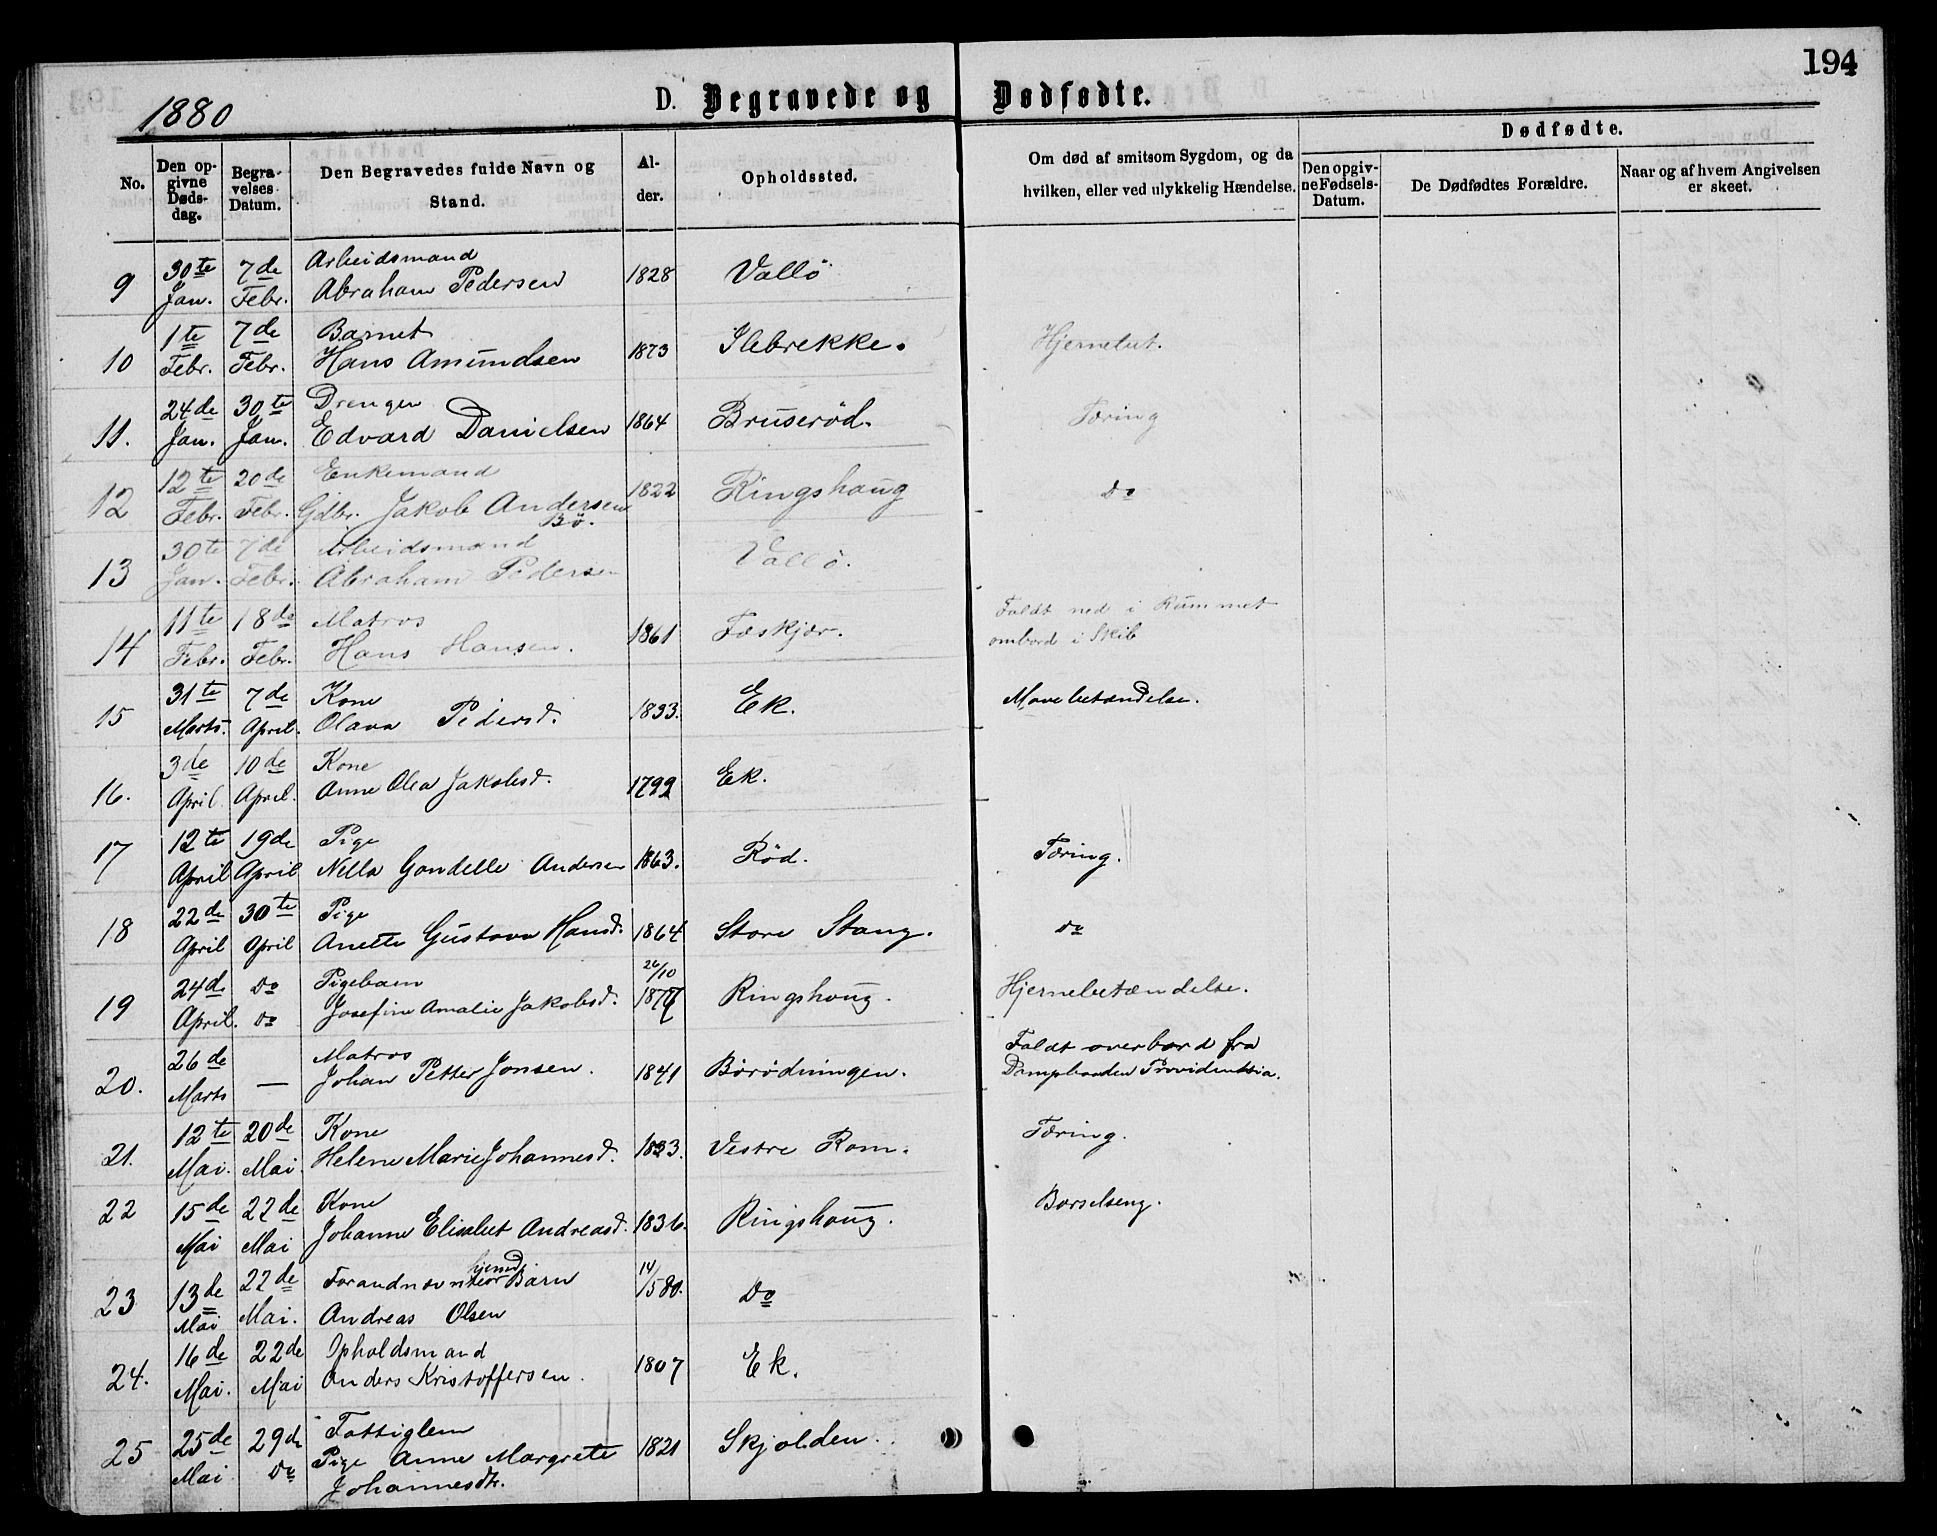 194
1880 D. Begravede og Dødfødte.
No. Den opgivne Dødsdag. Begravelses Datum. Den Begravedes fulde Navn og Stand. Alder. Opholdssted. Om død af smitsom Sygdom, og da hvilken, eller ved ulykkelig Hændelse. Dødfødte. Den opgivne Fødsels-Datum. De Dødfødtes Forældre. Naar og af hvem Angivelsen er skeet.
9 30te Jan. 7de Febr. Arbeidsmand Abraham Pedersen 1828 Vallö
10 1te Febr. 7de Febr. Barnet Hans Amundsen 1873 Ilebrekke.
11. 24de Jan. 30te Jan. Drengen Edvard Danielsen 1864 Bruserød. Tæring
12 12te Febr. 20de Febr. Enkemand Gdbr. Jakob Andersen Bö. 1822 Ringshaug Do
13 30te Jan. 7de Febr. Arbeidsmand Abraham Pedersen Vallö.
14 11te Febr. 18de Febr. Matros Hans Hansen. 1861 Fæskjær. Faldt ned i Rummet ombord i Skib
15 31te Marts. 7de April. Kone Olava Pedersd. 1833. Ek. Mavebetændelse.
16. 3de April. 10de April. Kone Anne Olea Jakobsd. 1792 Ek.
17 12te April 19de April Pige Nella Gondelle Andersen 1863. Rød. Tæring.
18 22de April 30te April Pige Anette Gustava Hansd. 1864 Store Stang. Do
19 24de April. Do Do Pigebarn Josefine Amalie Jakobsd. 26/10 1877 Ringshoug. Hjernebetændelse.
20. 26de Marts — Matros Johan Petter Jonsen. 1841 Börödningen. Faldt overbord fra Dampbaaden Providentsia.
21. 12te Mai. 20de Mai. Kone Helene Marie Johannesd. 1833. Vestre Rom. Tæring.
22 15de Mai 22de Mai Kone Johanne Elisabet Andreasd. 1836. Ringshoug. Barselseng.
23 13de Mai 22de Mai. Barn Andreas Olsen 14/5 80. Do
24. 16de Mai. 22de Mai Opholdsmand Anders Kristoffersen. 1807 Ek.
25 25de Mai 29de Do Fattiglem Pige Anne Margrete Johannesdtr. 1821 Skjolden.